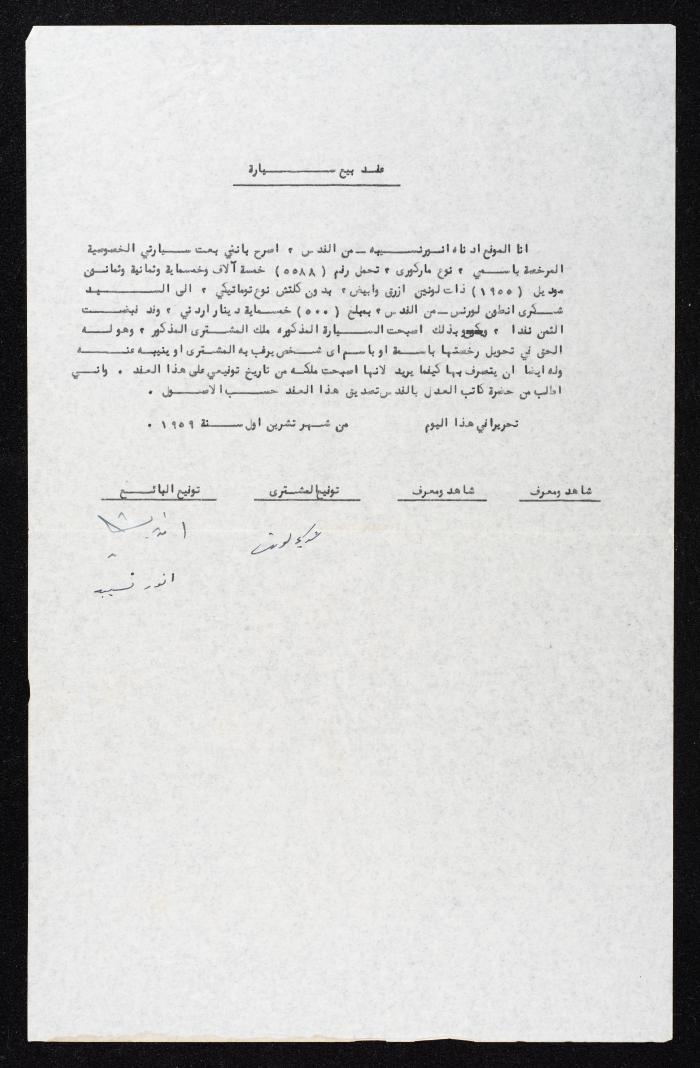 عقد بيع سيارة
انا الموقع ادناه انور نسيبه - من القدس ، اصرح بانني بعت سيارتي الخصوصية
المرخصة باسمي ، نوع ماركورى ، تحمل رقم (٥٥٨٨) خمسة آلاف وخمسماية وثمانية وثمانون
موديل (١٩٥٥) ذات لونين ازرق وابيض ، بدون كلتش نوع توماتيكي ، الى السيد
شكرى انطون لورنس - من القدس ، بمبلغ (٥٠٠) خمسماية دينار اردني ، وقد قبضت
الثمن نقدا ، وبذلك اصبحت السيارة المذكوره ملك المشترى المذكور ، وهو له
الحق في تحويل رخصتها باسمة او باسم اى شخص يرغب به المشترى او ينيبه عنه
وله ايضا ان يتصرف بها كيفما يريد لانها اصبحت ملكه من تاريخ توقيعي على هذا العقد . وانني
اطلب من حضرة كاتب العدل بالقدس تصديق هذا العقد حسب الاصول .
تحريرا في هذا اليوم من شهر تشرين اول سنة ١٩٥٩ .
شاهد ومعرف شاهد ومعرف توقيع المشترى توقيع البائع
شكري لورنس
انور نسيبه